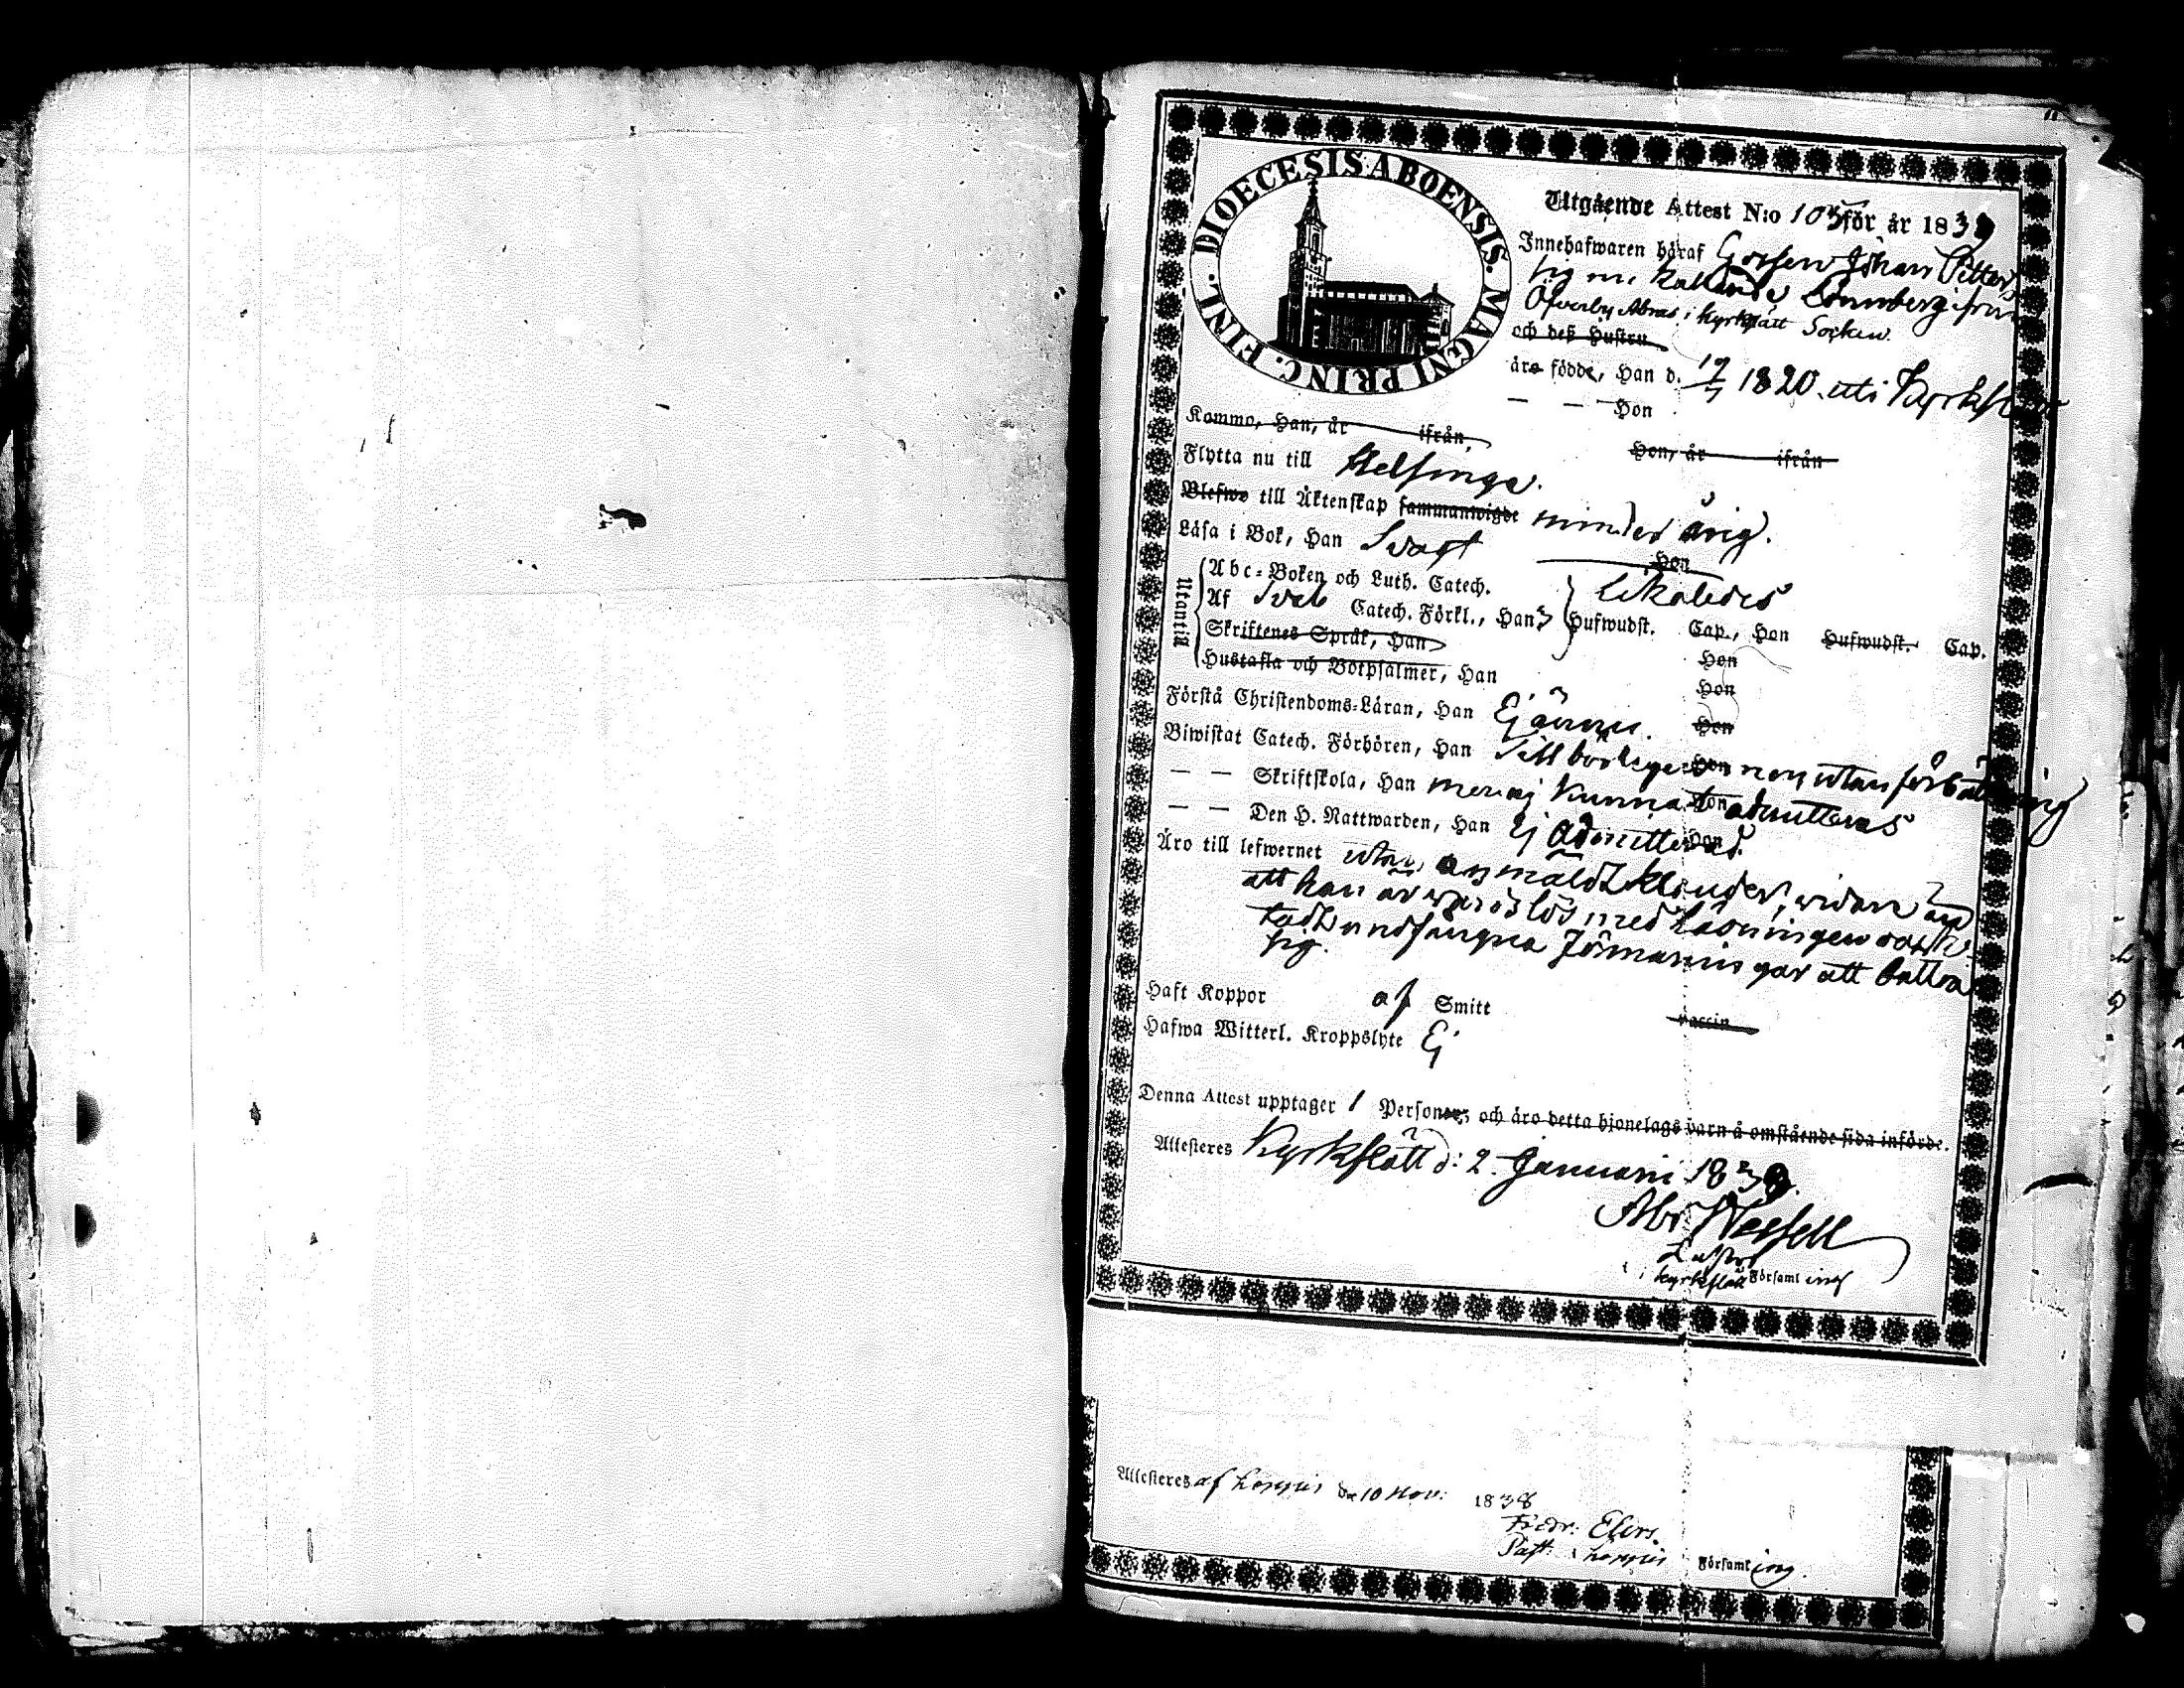 DIOECESIS ABOENSIS. MAGNI PRINC. FINL.
Utgående Attest N:o 103 för år 1839
Innehafwaren häraf Gossen Johan Petter
sig nu kallande Lönnberg ifrån
Öfverby Abras i Kyrkslätt Socken.
och deß Hustru
äro födde, Han d. 17 1820 uti Kyrkslätt
— — Hon
Kommo, Han, år ifrån Hon, år ifrån
Flytta nu till Helsinge.
Blefwo till Äktenskap sammanwigde minderårig.
Läsa i Bok, Han Svagt Hon
Utantill
Abc-Boken och Luth. Catech. Likaledes
Af Sveb Catech. Förkl., Han 3 Hufwudst. Cap., Hon Hufwudst. Cap.
Skriftenes Språk, Han Hon
Hustafla och Botpsalmer, Han Hon
Förstå Christendoms-Läran, Han Ej ännu. Hon
Biwistat Catech. Förhören, Han Tillbörligen men utan förbättring Hon
— — Skriftskola, Han men ej kunnat admitteras Hon
— — Den H. Nattwarden, Han Ej admitterad. Hon
Äro till lefwernet utan anmäldt klander,
att han är med Läsningen
undfångna Förmaningar att bättra
sig.
Haft Koppor af Smitt vaccin
Hafwa Witterl. Kroppslyte Ej
Denna Attest upptager 1 Personer, och äro detta hjonelags barn å omstående sida införde.
Attesteres Kyrkslätt d: 2 Januarii 1839.
Abr.
Pastor
i Kyrkslätt Församling
Attesteres af Loppis den 10 Nov: 1838
Fredr: Elers.
Past. i Loppis Församling.